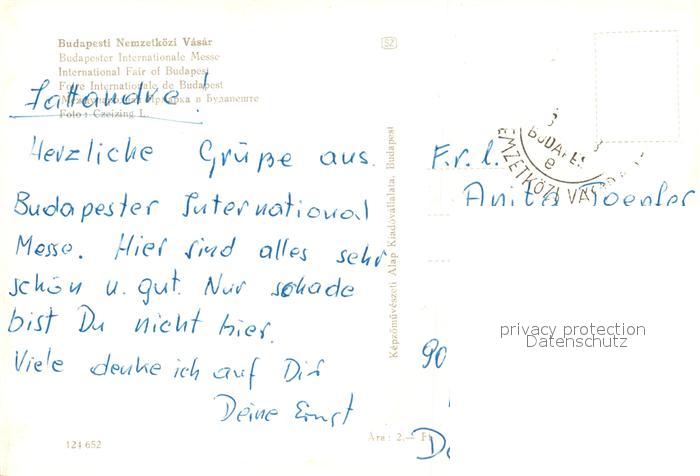 Budapesti Nemzetközi Vásár
Budapester Internationale Messe
International Fair of Budapest
Foire Internationale de Budapest
Международная Ярмарка в Будапеште
Foto: Czeizing L.
SZ
Herzliche Grüße aus
Budapester International
Messe. Hier sind alles sehr
schön u. gut. Nur schade
bist Du nicht hier.
Viele denke ich auf Dir
Deine Ernst
124 652
Ara: 2.— Ft
Képzőművészeti Alap Kiadóvállalata, Budapest
BUDAPES
e
EMZETKÖZI VÁSÁR
Frl.
Anita
90
privacy protection
Datenschutz